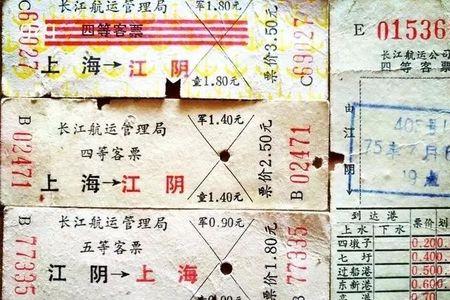 C69027
军1.80元
四等客票
上海→江阴
童1.80元
票价3.50元
C69027
B02471
长江航运管理局
四等客票
上海→江阴
军1.40元
童1.40元
票价2.50元
B02471
B77335
长江航运管理局
五等客票
江阴→上海
军0.90元
票价1.80元
B77335
E 01536
长江航运公司
四等客票
由江阴
75年7月
19点
到达港
上水 下水 票价
四墩子 0.200
七圩 0.400
过船港 0.500
东新港 0.600